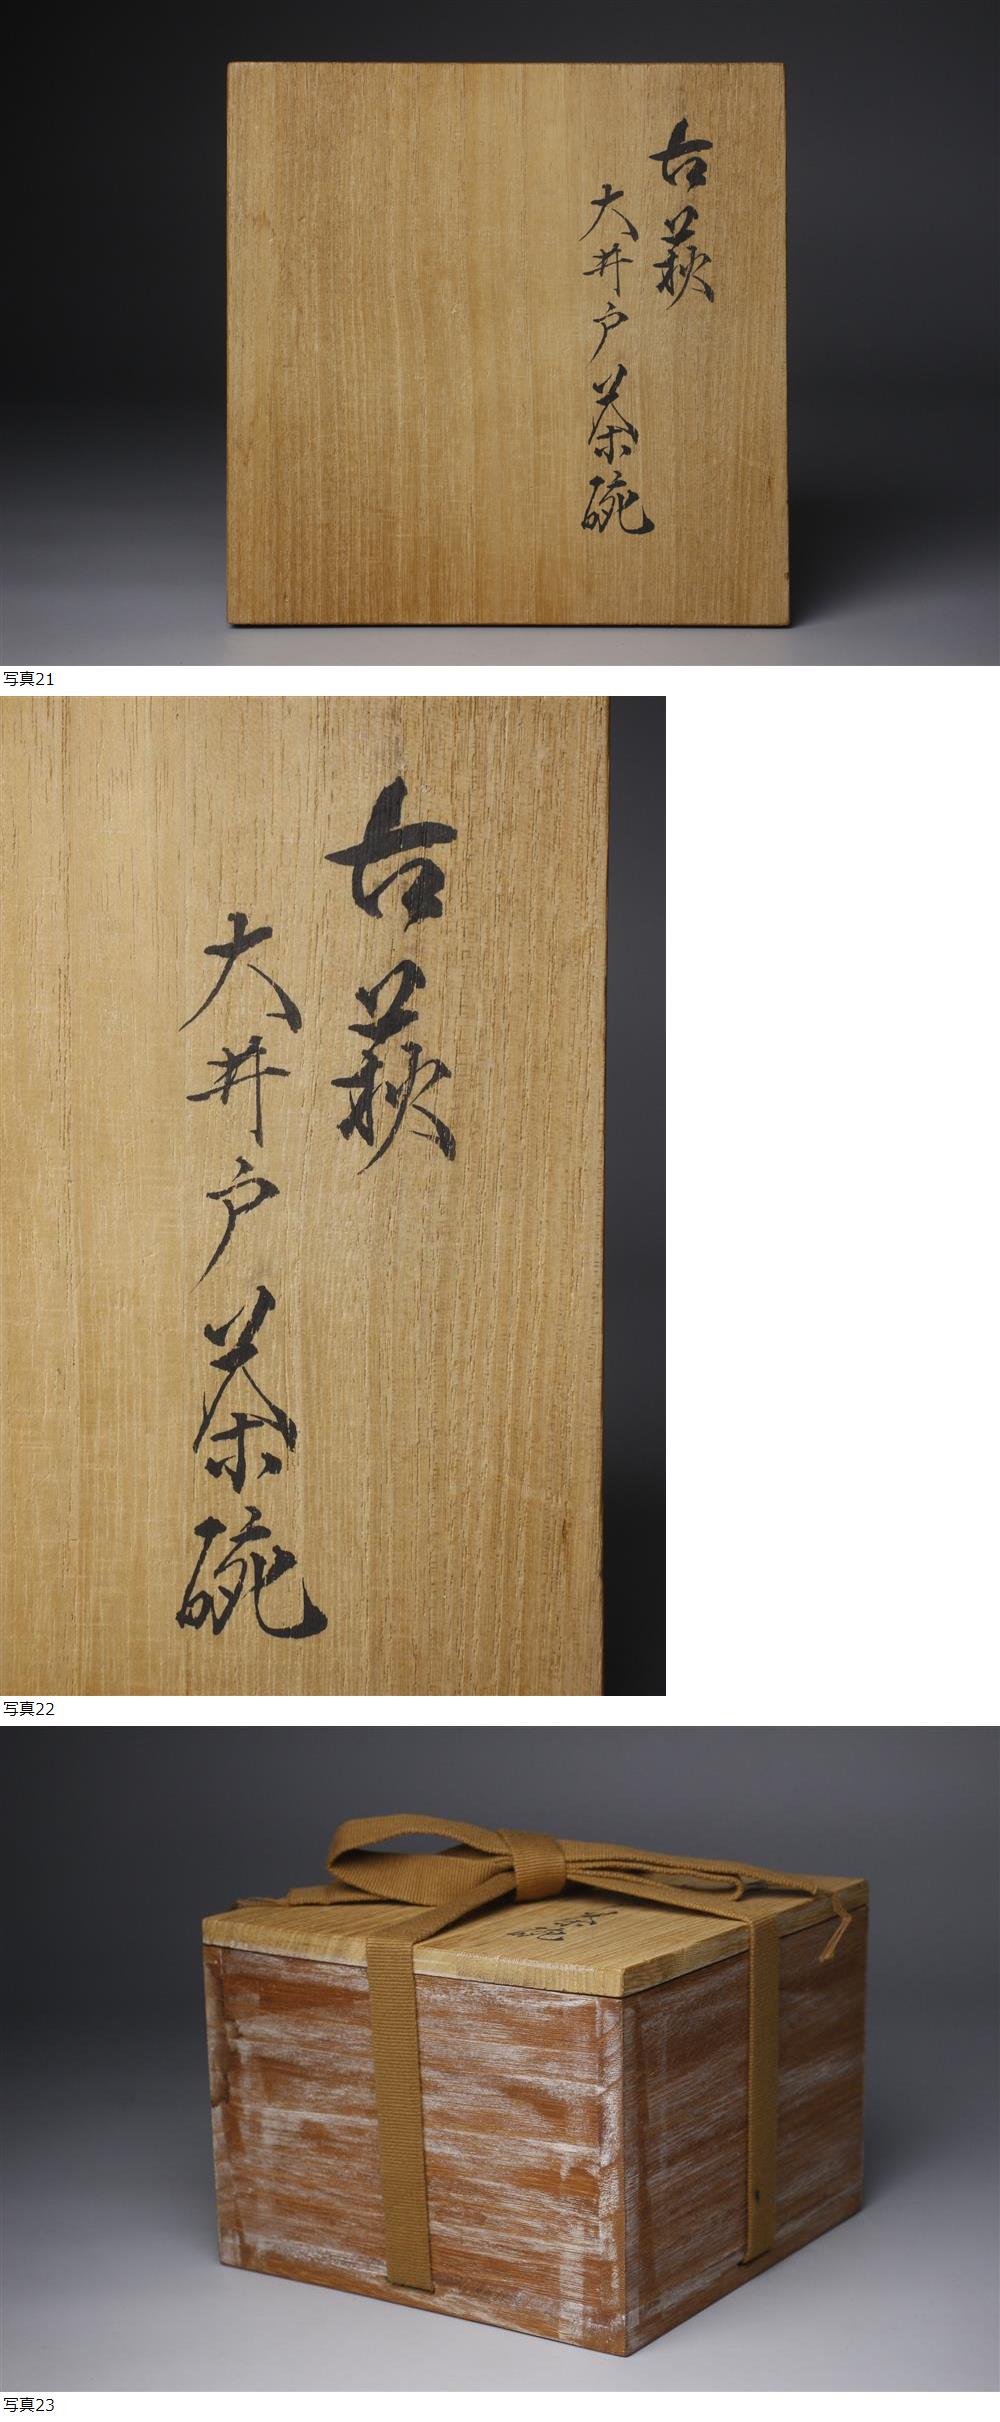 古萩
大井戸茶碗
写真21
古萩
大井戸茶碗
写真22
茶碗
写真23